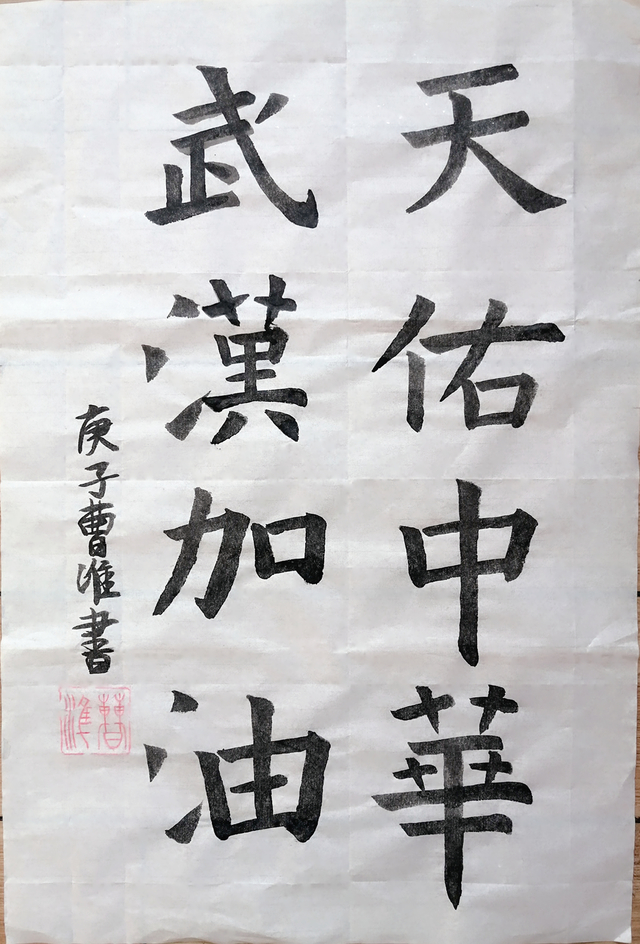 天佑中華
武漢加油
庚子曹淮書
曹淮